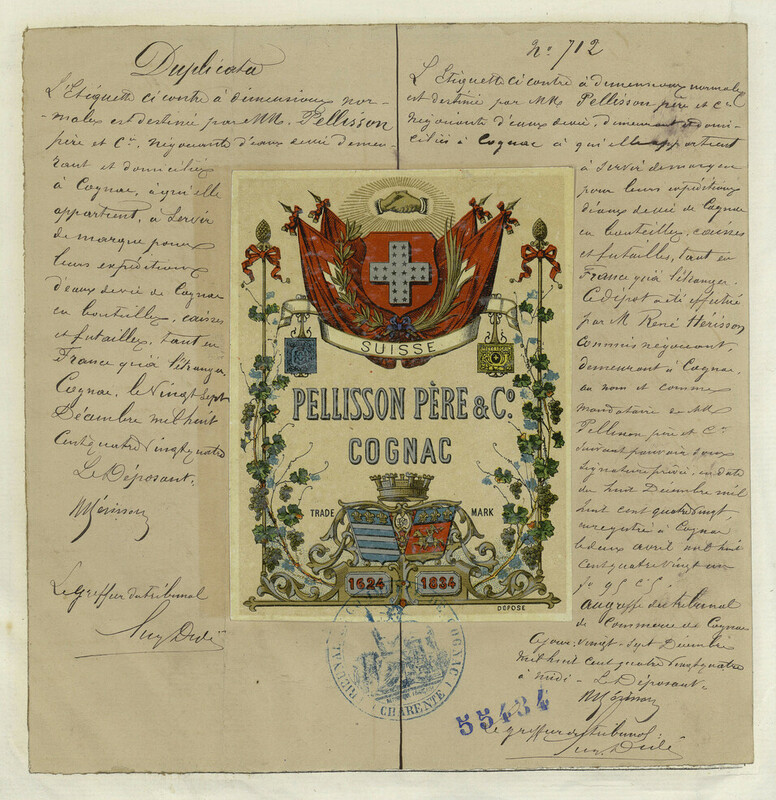 Duplicata
L'Etiquette ci contre à dimensions nor-
males est destinée par MM. Pellisson
père et Cie. négociants d'eaux de vie demeu-
rant et domiciliés
à Cognac, à qui elle
appartient, à servir
de marque pour
leurs expéditions
d'eaux de vie de Cognac
en bouteilles, caisses
et futailles, tant en
France qu'à l'étranger
Cognac, le Vingt Sept
Décembre mil huit
Cent quatre Vingt quatre
Le Déposant.
Hérisson
Le Greffier du tribunal
No 712
L'Etiquette ci contre à dimensions normales
est destinée par MM. Pellisson père et Cie
Négociants d'eaux de vie, demeurant et domi-
ciliés à Cognac à qui elle appartient
à servir de marque
pour leurs expéditions
d'eaux de vie de Cognac
en bouteilles, caisses
et futailles, tant en
France qu'à l'étranger.
Ce dépôt a été effectué
par M René Hérisson
Commis négociant,
demeurant à Cognac,
au nom et comme
mandataire de MM
Pellisson père et Cie
suivant pouvoir sous
signature privée, en date
du huit Décembre mil
huit cent quatre vingt
enregistré à Cognac
le deux avril mil huit
cent quatre vingt un
au greffe du tribunal
de Commerce de Cognac
Ce jour vingt-sept Décembre
mil huit cent quatre vingt quatre
à midi - Le Déposant
Hérisson
Le greffier du tribunal
SUISSE
PELLISSON PÈRE & Co.
COGNAC
TRADE MARK
1624 1834
DÉPOSÉ
COGNAC
CHARENTE
55484